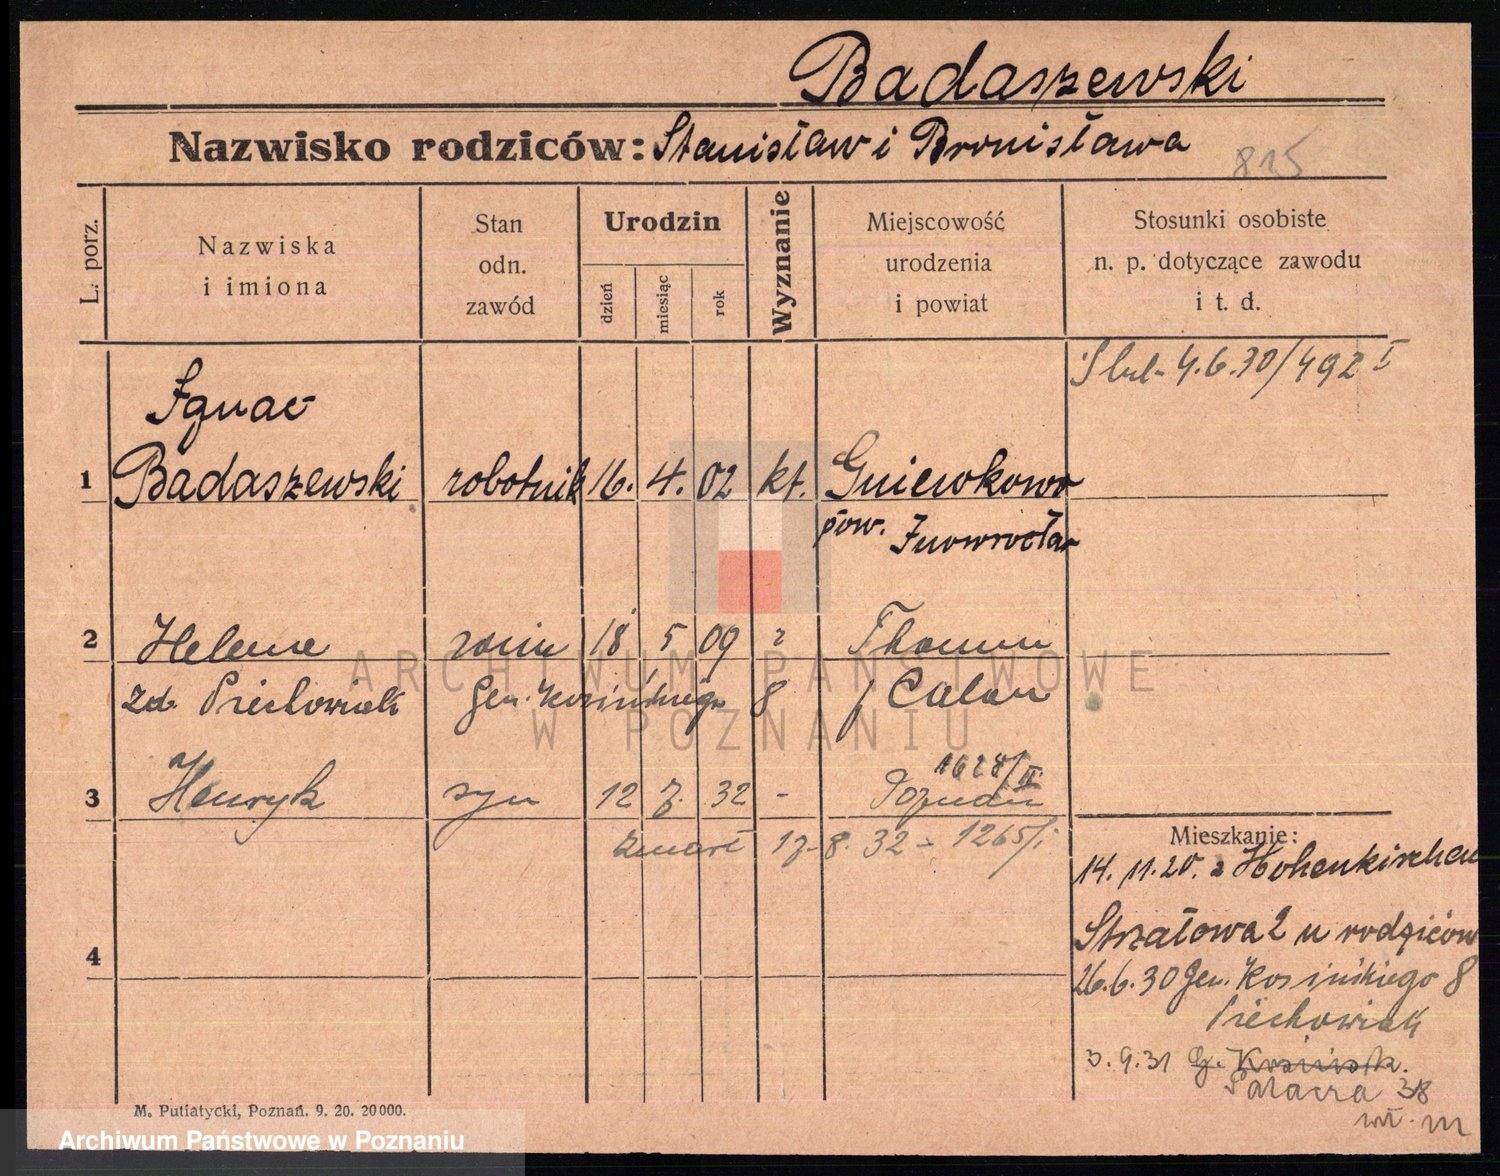 Badaszewski
Nazwisko rodziców: Stanisław i Bronisława 815
L. porz.
Nazwiska
i imiona
Stan
odn.
zawód
Urodzin
dzień
miesiąc
rok
Wyznanie
Miejscowość
urodzenia
i powiat
Stosunki osobiste
n. p. dotyczące zawodu
i t. d.
4.6.30/492 I
Ignac
1 Badaszewski robotnik 16. 4. 02 kt. Gniewkowo
pow. Inowrocław
2 Helena żona 18 5 09
zd. Piechowiak Gen. Kosińskiego 8
1628/II
3 Henryk syn 12 7. 32 - Poznań
zmarł 17.8.32 - 1265/I
Mieszkanie:
14.11.20. z Hohenkirchen
Strzałowa 2 u rodziców
26.6.30 Gen. Kosińskiego 8
Piechowiak
3.9.31 G. Kosińsk.
38
wł. m
4
M. Putiatycki, Poznań. 9. 20. 20000.
ARCHIWUM PAŃSTWOWE
W POZNANIU
Archiwum Państwowe w Poznaniu